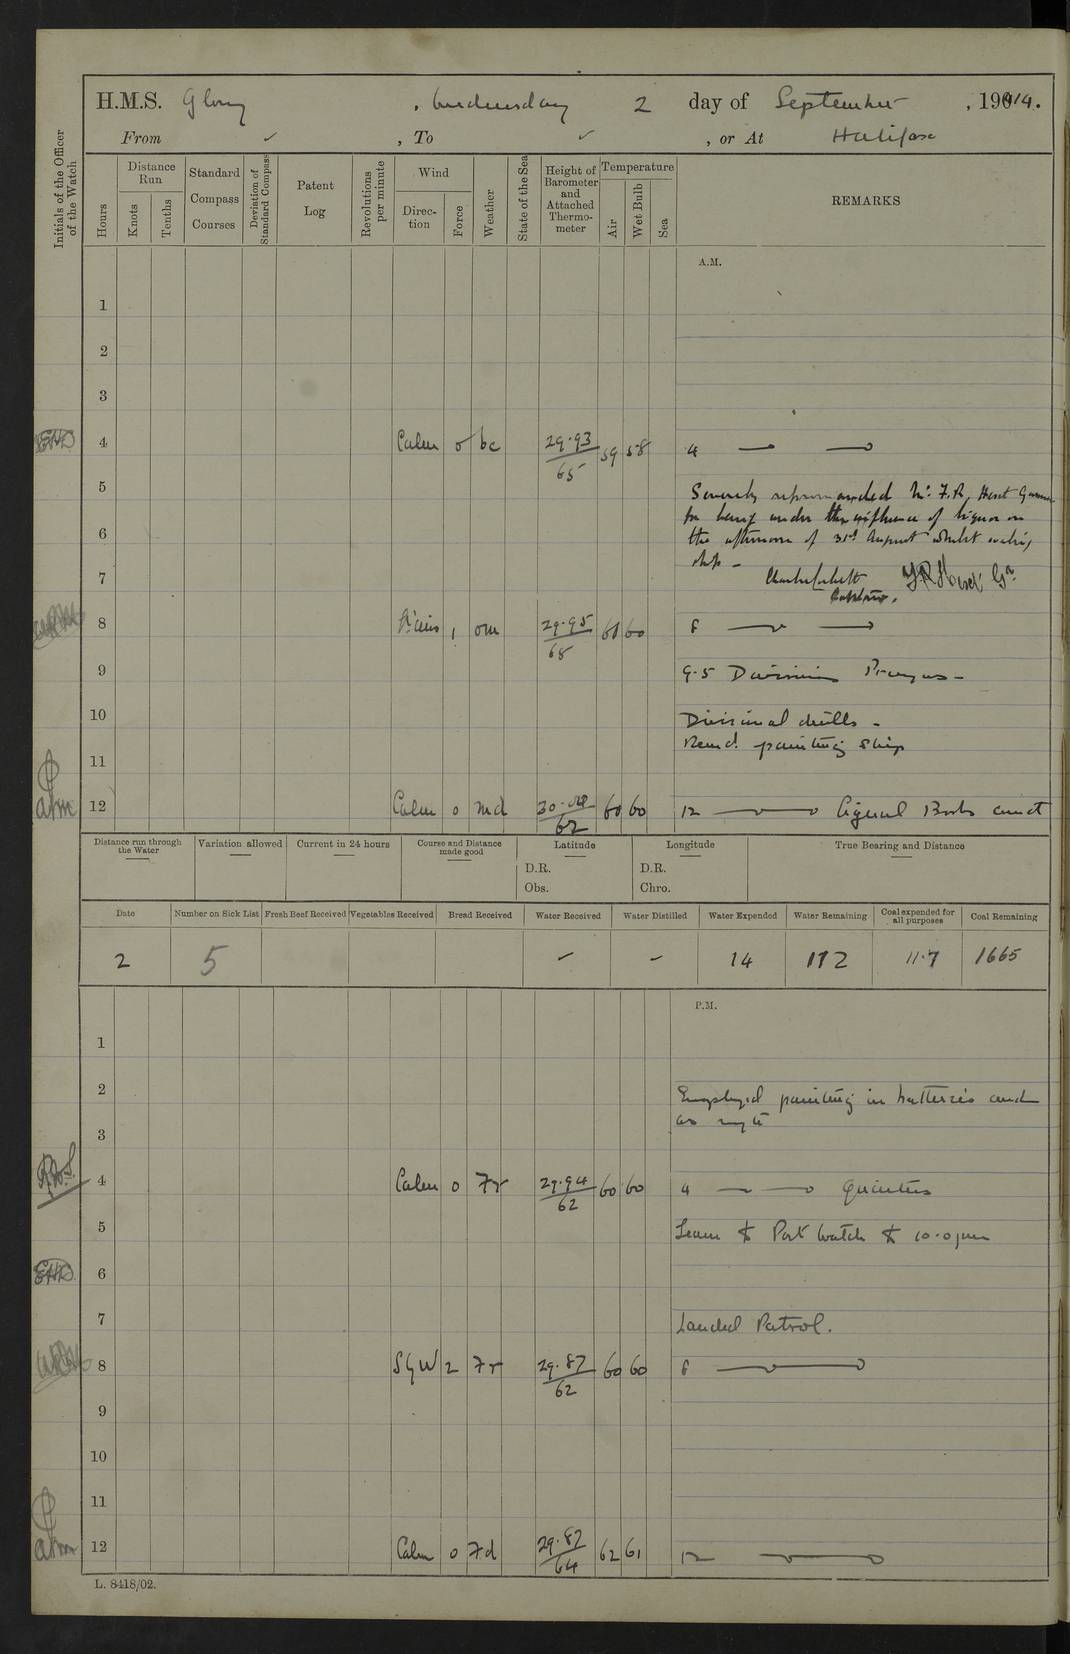 H.M.S. Glory, Wednesday 2 day of September, 1914.
From ✓, To ✓, or At Halifax
Initials of the Officer of the Watch
Hours
Distance Run
Knots
Tenths
Standard Compass Courses
Deviation of Standard Compass
Patent Log
Revolutions per minute
Wind
Direction
Force
Weather
State of the Sea
Height of Barometer and Attached Thermometer
Temperature
Air
Wet Bulb
Sea
REMARKS
A.M.
1
2
3
EHD 4 Calm 0 bc 29.93/65 59 58 4
5 Severely reprimanded Mr. F.R. Hext Gunner
for being under the influence of liquor on
6 the afternoon of 31st August whilst coaling
ship -
7 Captain. FR Hext Gr.
8 1 om 29.95/68 60 60 8
9 9.5 Divisions Prayers -
10 Divisional drills -
Remdr. painting ship
11
12 Calm 0 md 60 60 12 Signal Books corrct
Distance run through the Water
Variation allowed
Current in 24 hours
Course and Distance made good
Latitude
D.R.
Obs.
Longitude
D.R.
Chro.
True Bearing and Distance
Date
Number on Sick List
Fresh Beef Received
Vegetables Received
Bread Received
Water Received
Water Distilled
Water Expended
Water Remaining
Coal expended for all purposes
Coal Remaining
2 5 - - 14 112 11.7 1665
P.M.
1
2 Employed painting in batteries and
as reqte
3
4 Calm 0 7r 29.94/62 60 60 4 Quarters
5 Leave to Port Watch to 10.0 pm
EHD 6
7 Landed Patrol.
8 SyW 2 7r 29.87/62 60 60 8
9
10
11
12 Calm 0 7d 29.87/64 62 61 12
L. 8418/02.